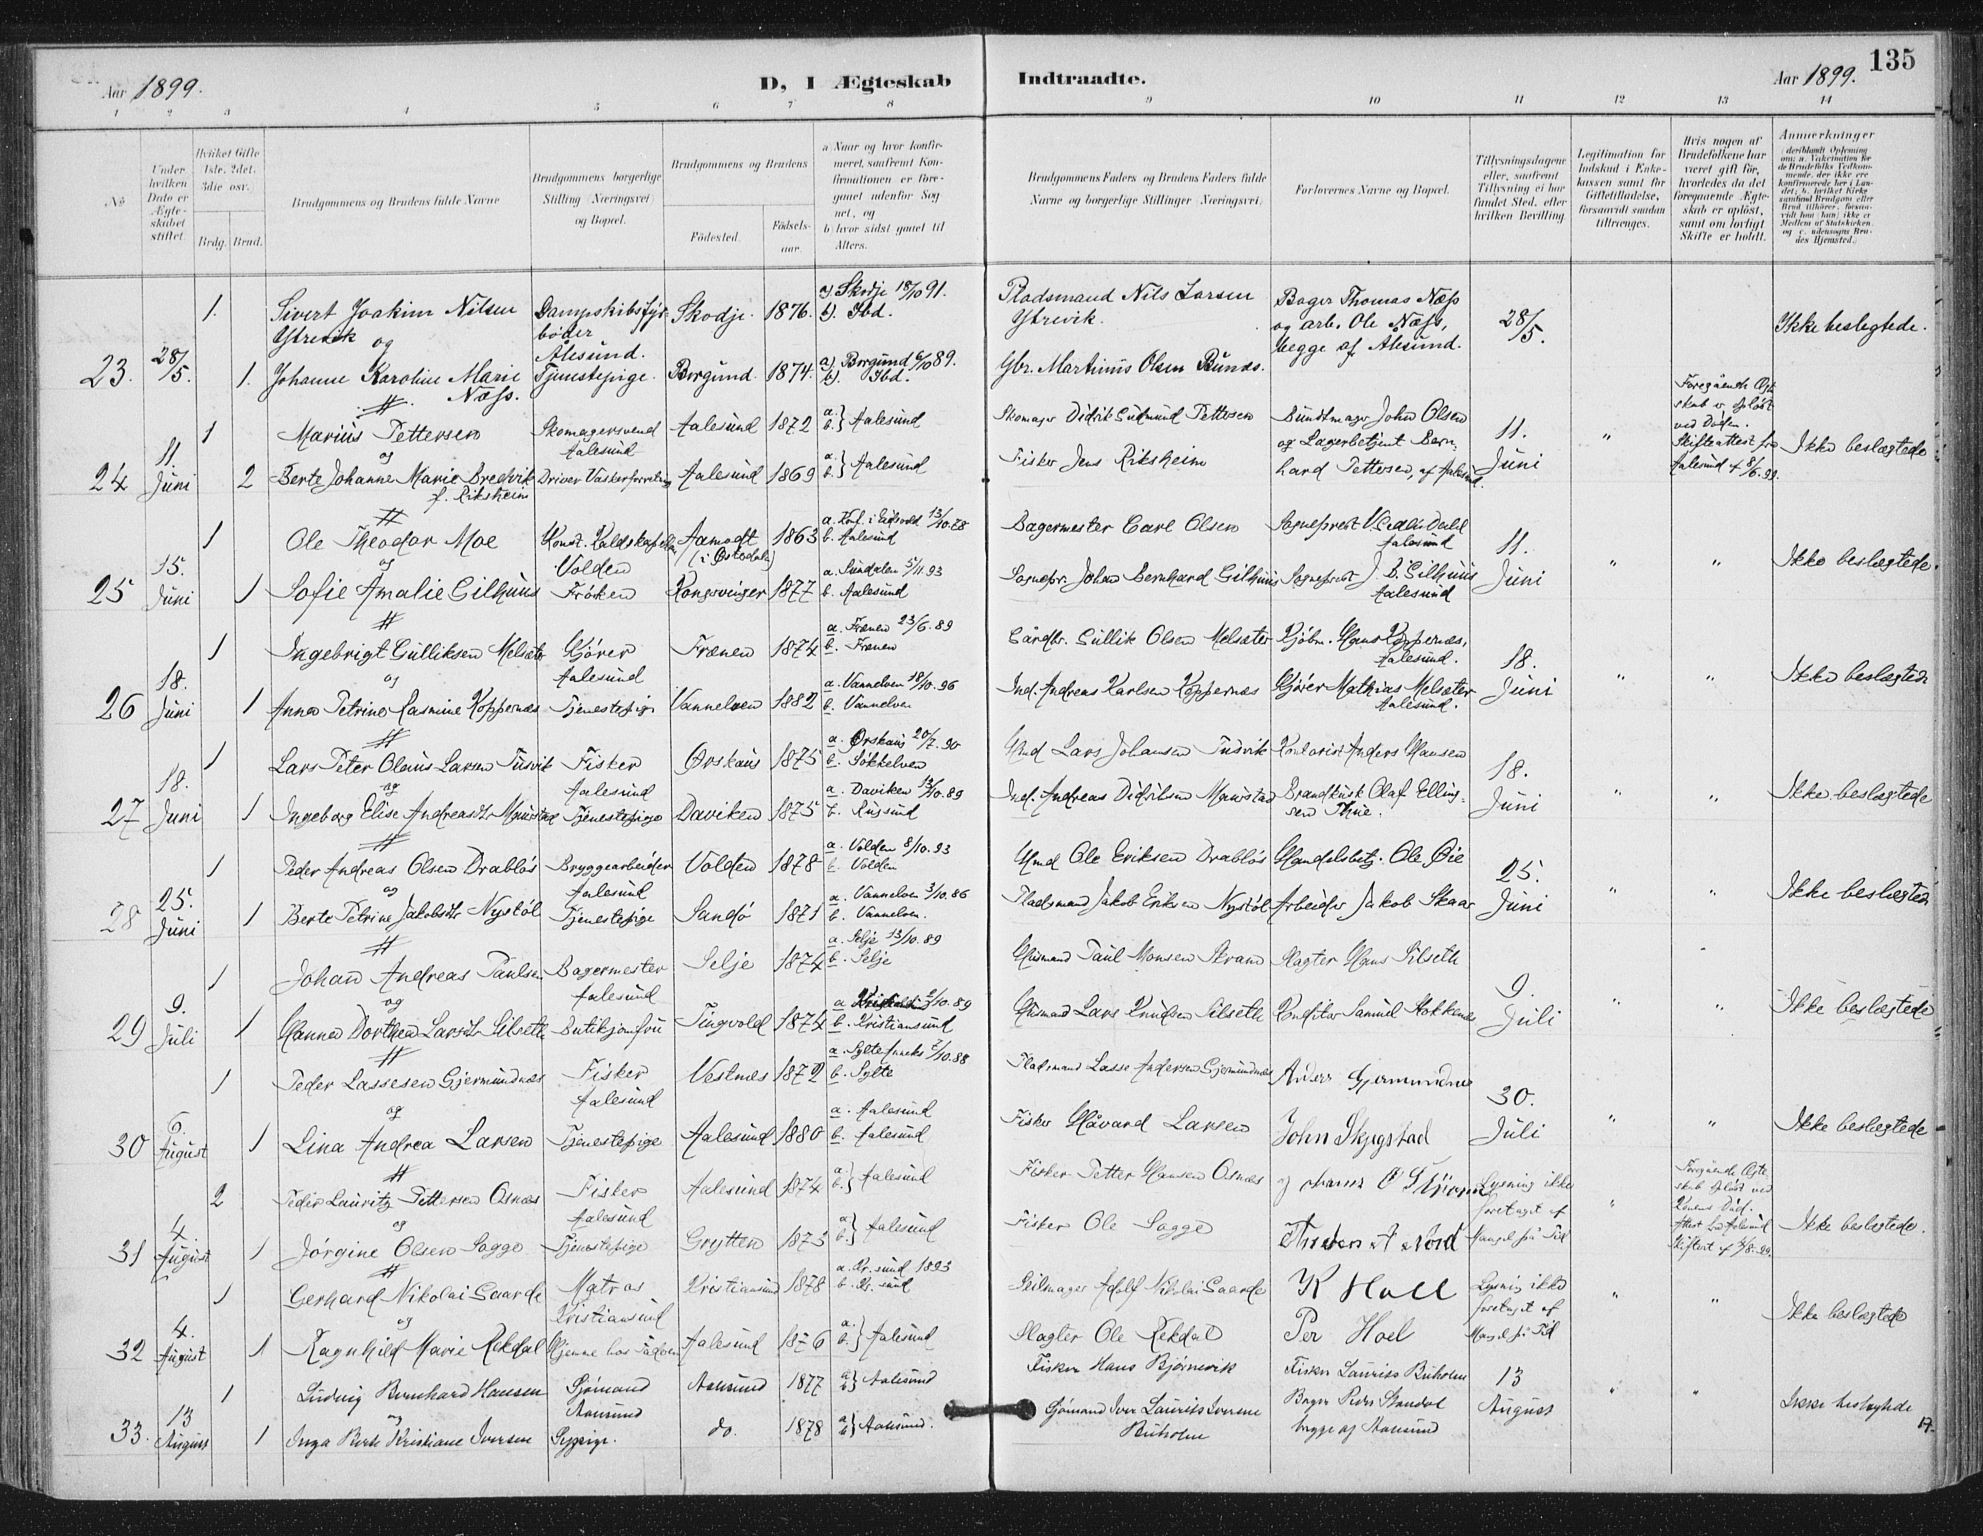 135
Aar 1899.
D, I Ægteskab Indtraadte.
Aar 1899.
1 2 3 4 5 6 7 8 9 10 11 12 13 14
No
Under hvilken Dato er Ægteskabet stiftet.
Hvilket Gifte 1ste. 2det. 3die osv.
Brdg. Brud.
Brudgommens og Brudens fulde Navne
Brudgommens borgerlige Stilling (Næringsvei) og Bopæl.
Brudgommens og Brudens
Fødested.
Fødselsaar.
a Naar og hvor konfirmeret, saafremt Konfirmationen er foregaaet udenfor Sognet, og
b hvor sidst gaaet til Alters.
Brudgommens Faders og Brudens Faders fulde Navne og borgerlige Stillinger (Næringsvei)
Forlovernes Navne og Bopæl.
Tillysningsdagene eller, saafremt Tillysning ei har fundet Sted, efter hvilken Bevilling.
Legitimation for Indskud i Enkekassen samt for Giftetilladelse, forsaavidt saadan tiltrænges.
Hvis nogen af Brudefolkene har været gift før, hvorledes da det foregaaende Ægteskab er opløst, samt om lovligt Skifte er holdt.
Anmerkninger
23. 28/5.
1. Sivert Joakim Nilsen Ytrevik og
Dampskibsfyrbøder Ålesund.
Skodje. 1876.
a). Skodje 18/10 91.
b). Ibd.
Pladsmand Nils Larsen Ytrevik.
Bager Thomas Næss og arb. Ole Næss, begge af Ålesund.
28/5.
Ikke beslegtede.
1. Johanne Karoline Marie Næss.
Tjenestepige. Borgund. 1874.
a). Borgund 6/10 89.
b). Ibd.
Gbr. Martinus Olsen Bunes.
24 11 Juni
1 Marius Pettersen og
Skomagersvend Aalesund
Aalesund 1872
a. b. } Aalesund
Skomager Didrik Gudmund Pettersen
Buntmager John Olsen og Lagerbetjent Bernhard Pettersen, af Aalesund.
11. Juni
"
Foregående Ægteskab er opløst ved Døden. Skifteattest fra Aalesund af 8/6.99.
Ikke beslægtede
2 Berte Johanne Marie Bredvik f. Riksheim
Driver Vaskeforretning Aalesund 1869
a. b. } Aalesund
Fisker Jens Riksheim
25 15. Juni
1 Ole Theodor Moe og
Konst. Kaldskapellan Volden
Aamodt (i Østerdalen) 1863
a. Konf. i Eidsvold 13/10.78
b. Aalesund
Bagermester Carl Olsen
Aalesund
11. Juni
" "
Ikke beslægtede.
1 Sofie Amalie Gilhuus
Frøken Kongsvinger 1877
a. Sundalen 5/11 93
b. Aalesund
Sognepr. Johan Bernhard Gilhuus
Sogneprest J. B. Gilhuus Aalesund
26 18. Juni
1 Ingebrigt Gulliksen Melsæter og
Gjører Aalesund
Frænen 1874
a. Frænen 23/6.89
b. Frænen
Gårdbr. Gullik Olsen Melsæter
Kjøbm. Hans Koppernæs, Aalesund.
18. Juni
" "
Ikke beslægtede
1 Anne Petrine Rasmine Koppernæs
Tjenestepige Vannelven 1882
a. Vannelven 18/10.96
b. Vannelven
Ind. Andreas Karlsen Koppernæs
Gjører Mathias Melsæter Aalesund.
27 18. Juni
1 Lars Peter Olaus Larsen Tusvik og
Fisker Aalesund
Ørskaug 1875
a. Ørskaug 20/7.90
b. Søkkelven
Gmd Lars Johansen Tusvik
Kontorist Anders Hansen
18. Juni
" "
Ikke beslægtede
1 Ingeborg Elise Andreasd. Maurstad
Tjenestepige Daviken 1875
a. Daviken 13/10.89
b. Rugsund
Ind. Andreas Didriksen Maurstad
Brandkusk Olaf Ellingsen Thue.
28 25. Juni
1 Peder Andreas Olsen Drabløs og
Bryggearbeider Aalesund
Volden 1878
a. Volden 8/10.93
b. Volden
Gmd Ole Eriksen Drabløs
Handelsbetj. Ole Øie
25. Juni
" "
Ikke beslægtede
1 Berte Petrine Jakobsd. Nystøl
Tjenestepige Sandø 1871
a. Vannelven 3/10.86
b. Vannelven.
Pladsmand Jakob Eriksen Nystøl
Arbeider Jakob Skaar
29 9. Juli
1 Johan Andreas Paulsen og
Bagermester Aalesund
Selje 1874
a. Selje 13/10.89
b. Selje
Husmand Paul Monsen Strand
Slagter Hans Silseth
9. Juli
" "
Ikke beslegtede
1 Hanna Dorthea Larsd. Silseth
Butikjomfru Tingvold 1874
a. 2/10.89
b. Kristiansund
Husmand Lars Knudsen Silseth
Konditor Samuel Stokkenæs
30 6. August
1 Peder Lassesen Gjermundnæs og
Fisker Aalesund
Vestnæs 1872
a. Sylte Anneks 7/10.88
b. Sylte
Pladsmand Lasse Andersen Gjermundnæs
Anders Gjermundnæs
30. Juli
" "
Ikke beslegtede
1 Lina Andrea Larsen
Tjenestepige Aalesund 1880
a. Aalesund
b. Aalesund
Fisker Håvard Larsen
John Skjegstad
31 4. August
2 Peder Lauritz Pettersen Osnæs og
Fisker Aalesund
Aalesund 1874
a. b. } Aalesund
Fisker Petter Hansen Osnæs
Lysning ikke foretaget af Mangel på Tid
"
Foregående Ægteskab opløst ved Konens Død. Attest fra Aalesund Skifteret af 4/8.99.
Ikke beslegtede.
1 Jørgine Olsen Sogge
Tjenestepige Grytten 1873
a. b. } Aalesund
Fisker Ole Sogge
32 4. August
1 Gerhard Nikolai Saarde og
Matros Kristiansund
Kristiansund 1878
a. Kr.sund 1893
b. Kr.sund
Seilmager Adolf Nikolai Saarde
K Hoel
Lysnig ikke foretaget af Mangel på Tid
" "
Ikke beslegtede
1 Ragnhild Marie Rekdal
Hjemme hos Faderen Aalesund 1876
a. b. } Aalesund
Slagter Ole Rekdal
Per Hoel
33. 13 August
1 Ludvig Bernhard Hansen og
Sjømand Aalesund
Aalesund 1877
a b } Aalesund
Fisker Hans Bjørnevik
Fisker Laurits Buholm
13 August
" "
Ikke beslegtede
1 Inga Berte Kristiane Iversen
Sypige. do. 1878
a b } Aalesund.
Sjømand Iver Laurits Iversen Buholm
begge af Aalesund